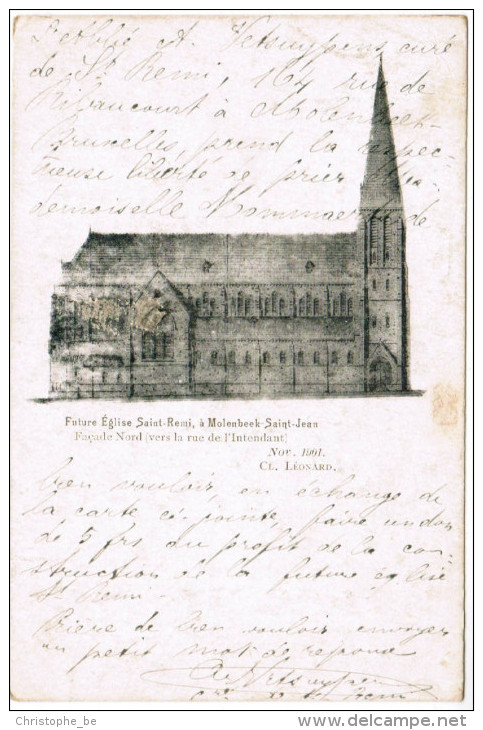 L'abbé A. Vetsuypens curé
de St Remi, 164 rue de
Ribaucourt à Molenbeek-
Bruxelles, prend la respec-
tueuse liberté de prier Ma-
demoiselle Mommaerts de
Future Église Saint-Remi, à Molenbeek-Saint-Jean
Façade Nord (vers la rue de l'Intendant)
Nov. 1901.
CL. LÉONARD.
bien vouloir, en échange de
la carte ci-jointe, faire un don
de 5 frs au profit de la con-
struction de la future église
St Remi.
Prière de bien vouloir envoyer
un petit mot de reponse
A. Vetsuypens
St Remi
Christophe_be
www.delcampe.net